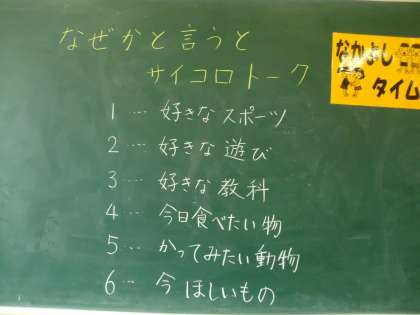 なぜかと言うと
サイコロトーク
なかよし
タイム
1…好きなスポーツ
2…好きな遊び
3…好きな教科
4…今日食べたい物
5…かってみたい動物
6…今ほしいもの